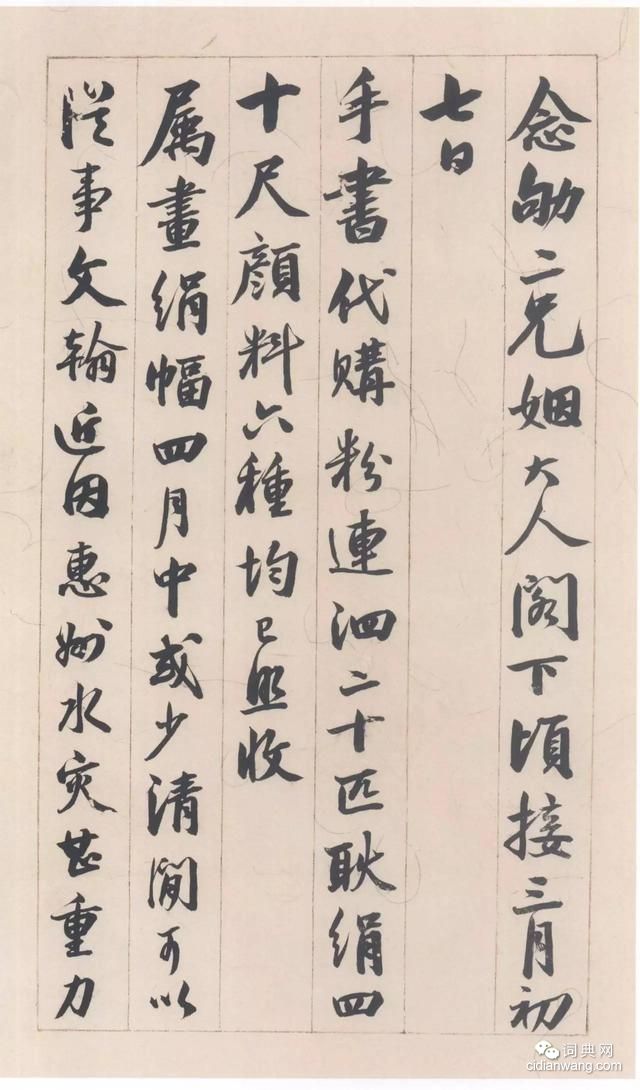 念劬二兄姻大人阁下頃接三月初
七日
手書代購粉連泗二十匹耿絹四
十尺顔料六種均已照收
属畫絹幅四月中或少清閒可以
從事文翰近因惠州水灾甚重力
词典网
cidianwang.com